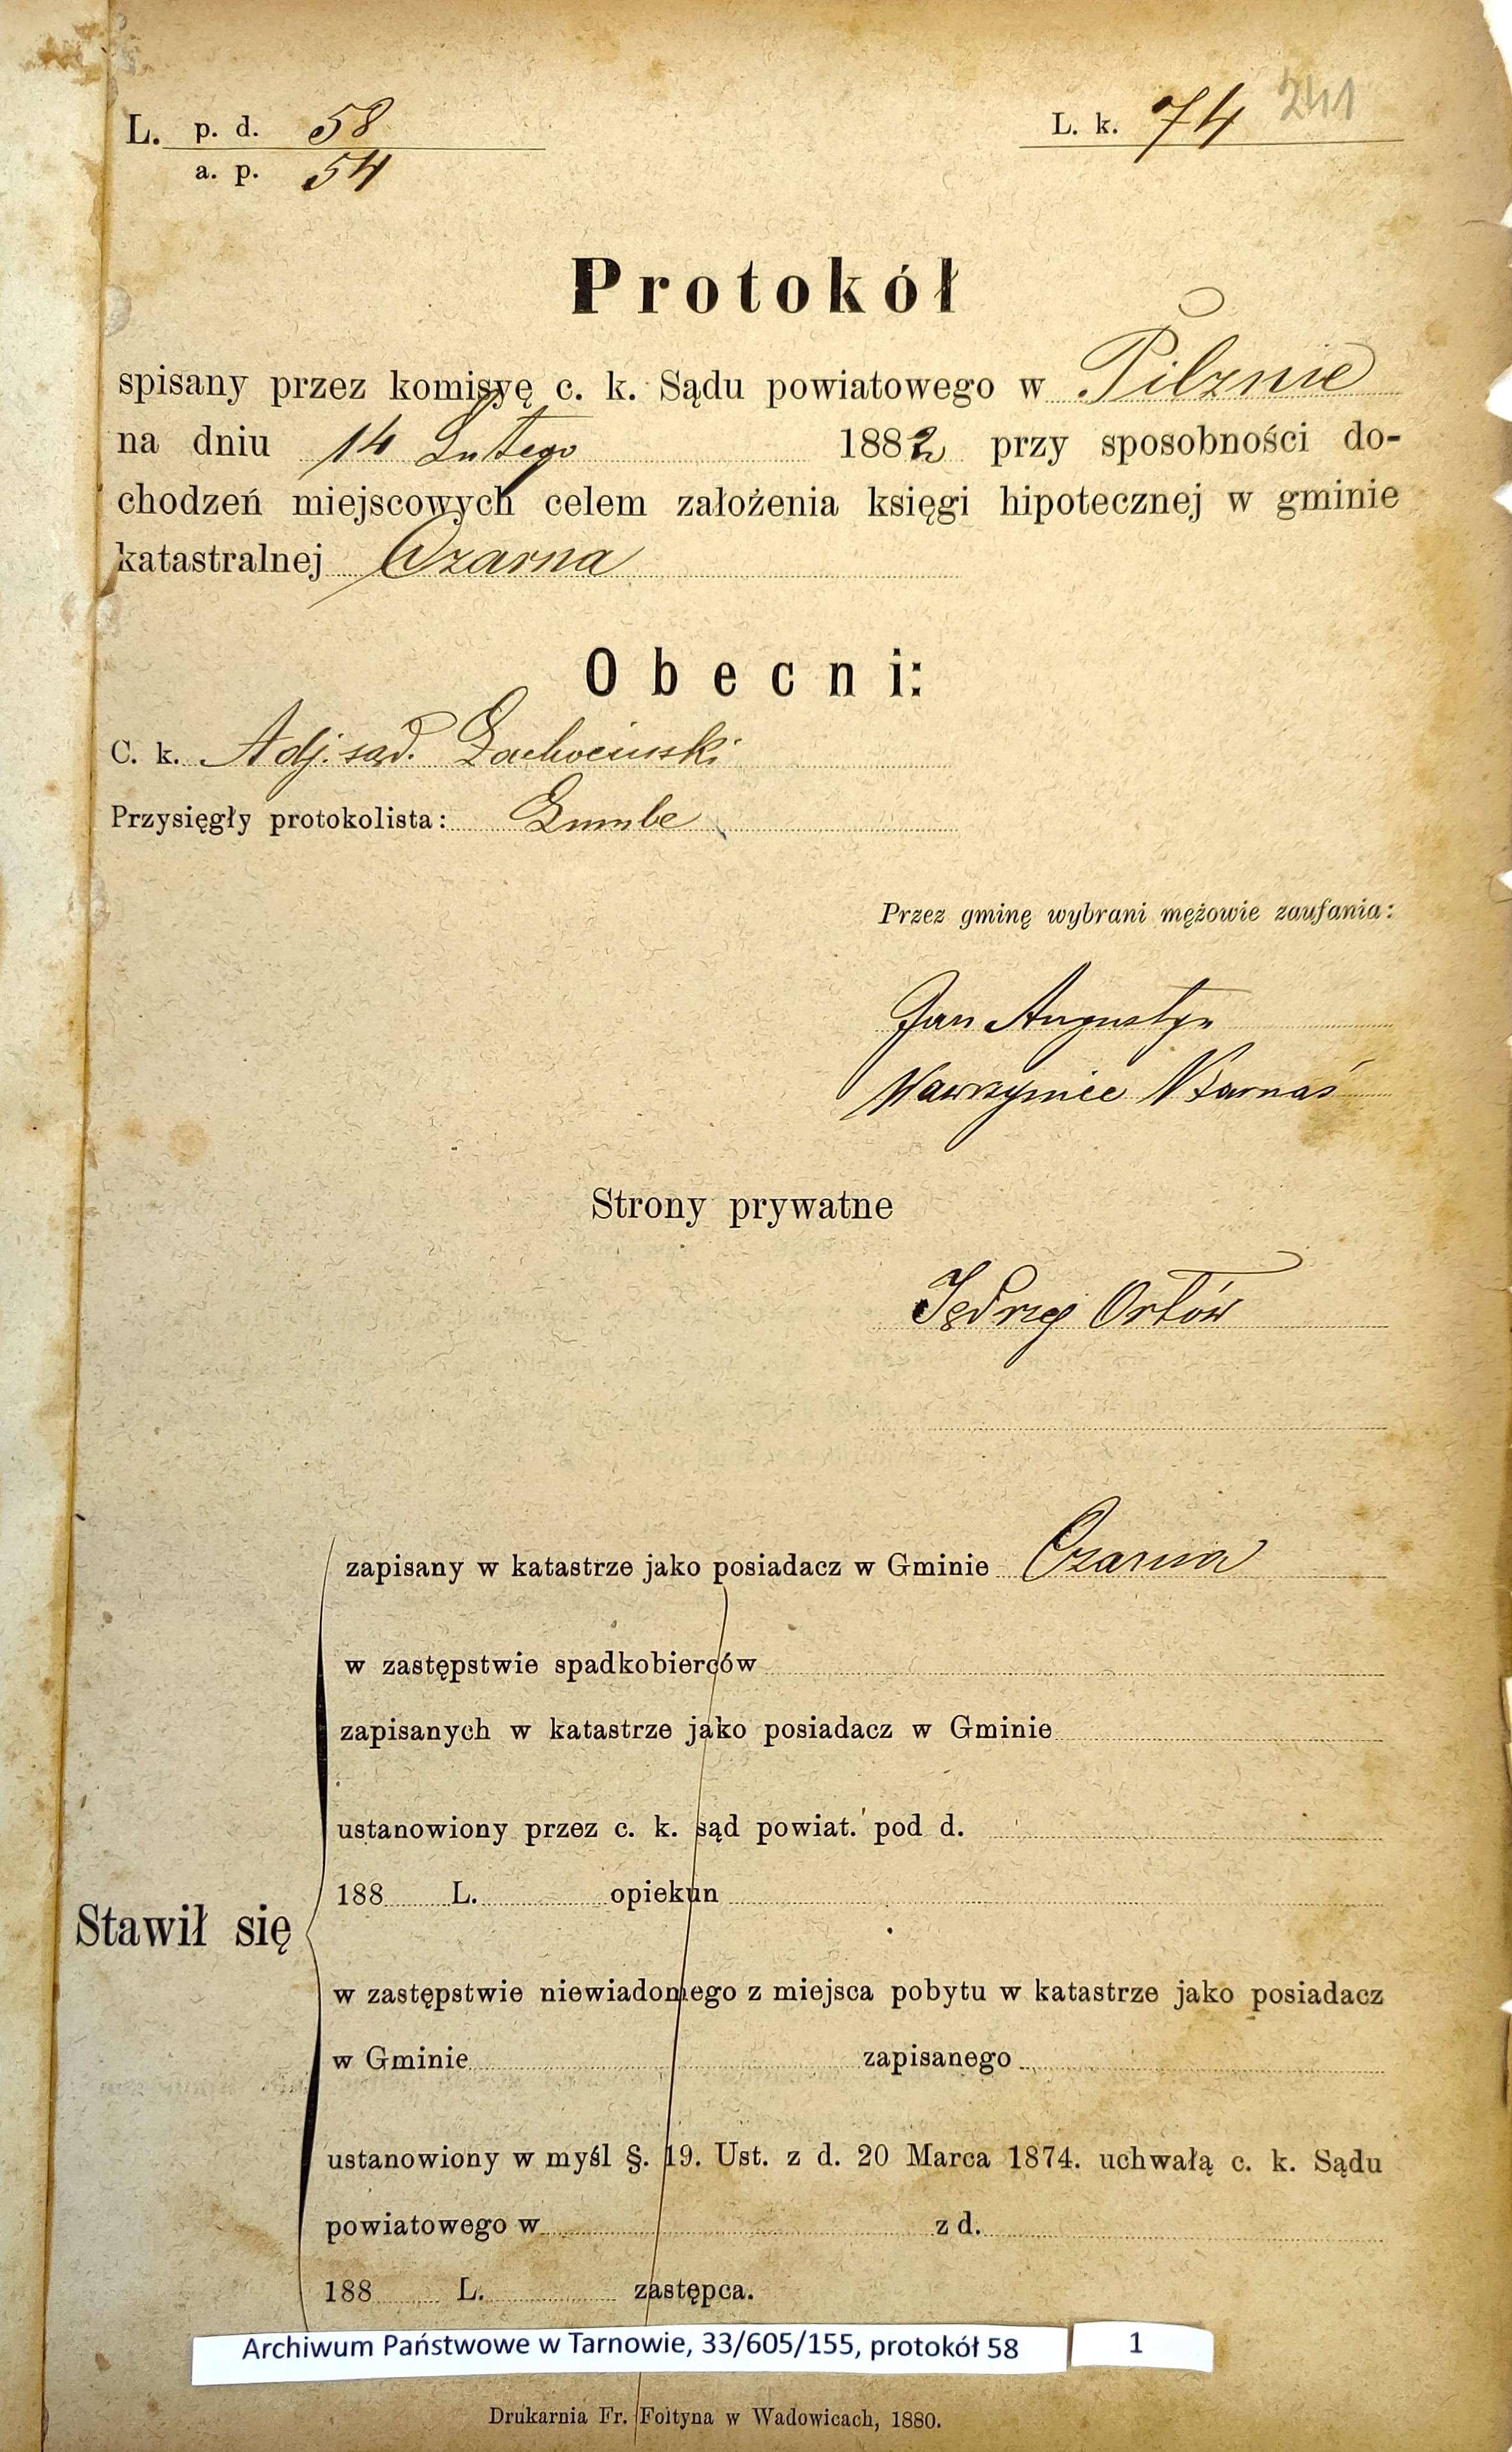 L. p. d. 58
a. p. 54
L. k. 74 241
Protokół
spisany przez komisyę c. k. Sądu powiatowego w Pilznie
na dniu 14 Lutego 1882 przy sposobności do-
chodzeń miejscowych celem założenia księgi hipotecznej w gminie
katastralnej Czarna
Obecni:
C. k. Adj. sąd.
Przysięgły protokolista:
Przez gminę wybrani mężowie zaufania:
Jan Augustyn
Wawrzyniec
Strony prywatne
Jędrzej Orłów
zapisany w katastrze jako posiadacz w Gminie Czarna
w zastępstwie spadkobierców
zapisanych w katastrze jako posiadacz w Gminie
ustanowiony przez c. k. sąd powiat. pod d.
188 L. opiekun
Stawił się
w zastępstwie niewiadomego z miejsca pobytu w katastrze jako posiadacz
w Gminie zapisanego
ustanowiony w myśl §. 19. Ust. z d. 20 Marca 1874. uchwałą c. k. Sądu
powiatowego w z d.
188 L. zastępca.
Archiwum Państwowe w Tarnowie, 33/605/155, protokół 58 1
Drukarnia Fr. Foltyna w Wadowicach, 1880.